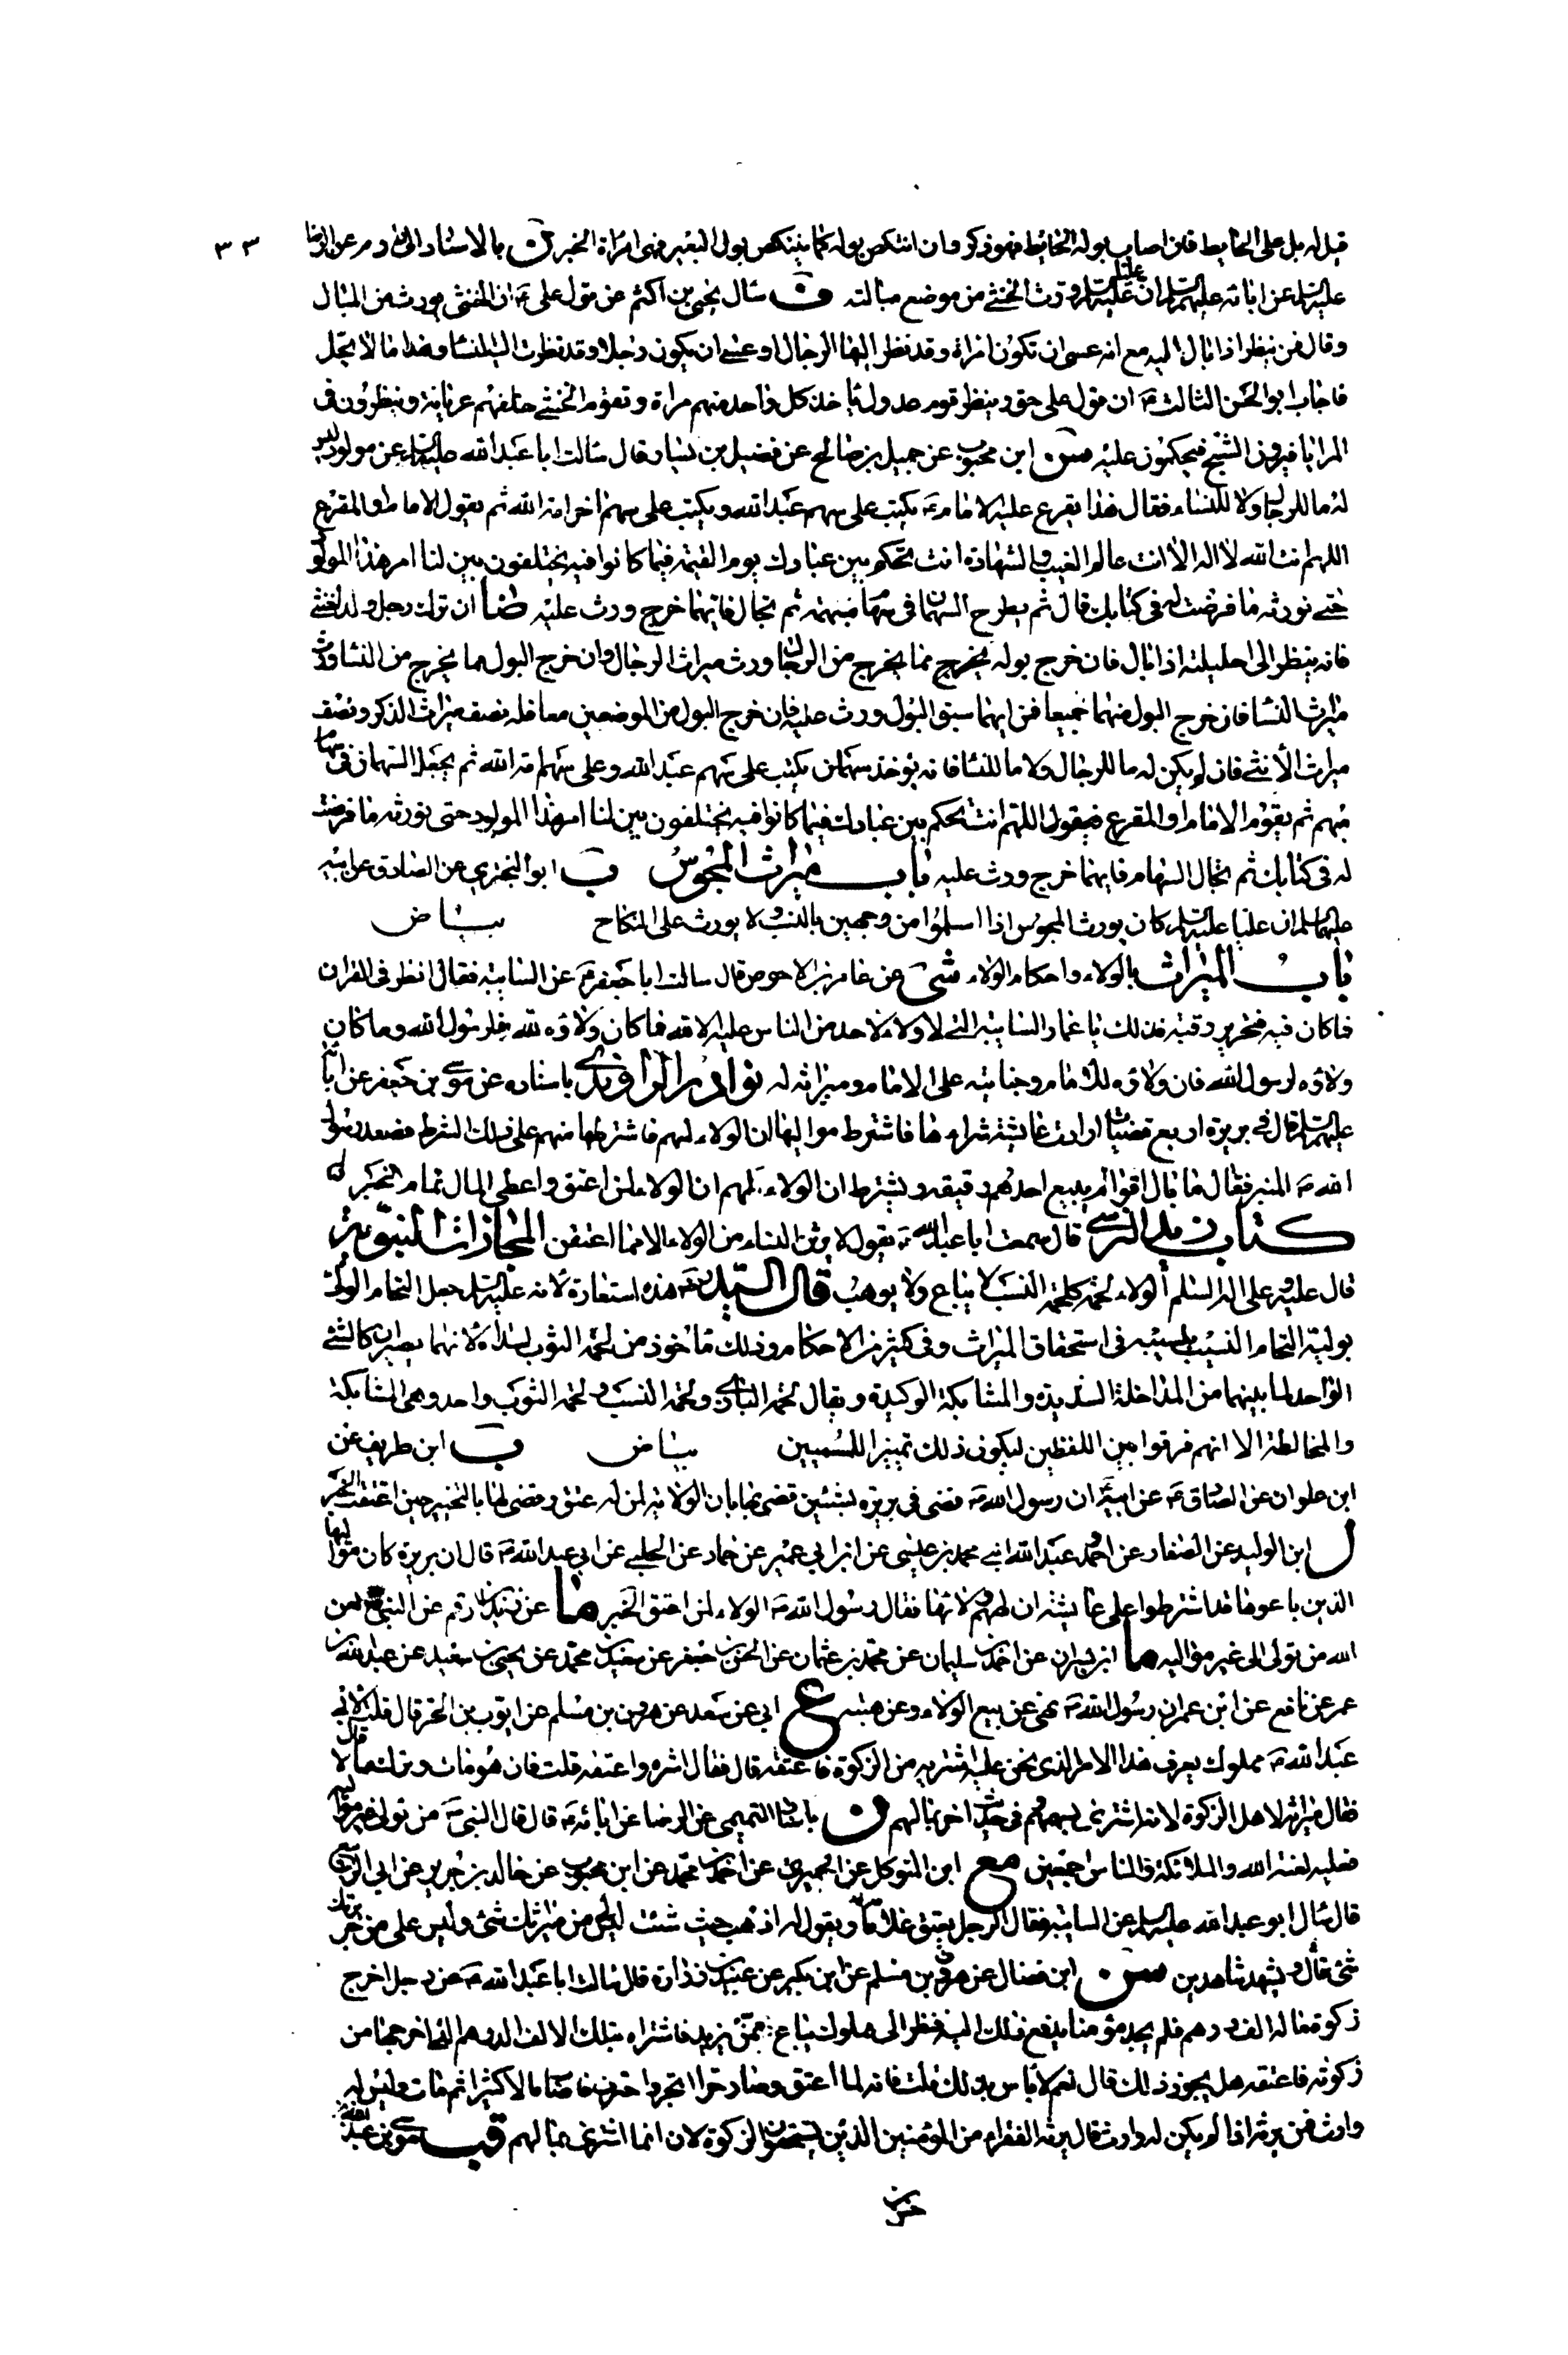 ٣٣
قبل له بل على الحايط فان اصاب بوله الحايط فهو ذكر وان انتكص بوله كما ينتكص بول البعير فهى امراة الخبر ن بالاسناد الى دارم عن الرضا
عليه السلم عن ابائه عليهم السلم ان عليا عليه السلم ورث الخنثى من موضع مبالته ف سال يحيى بن اكثم عن قول على ع ان الخنثى يورث من المبال
وقال فمن ينظر اذا بال اليه مع انه عسى ان تكون امراة وقد نظر اليها الرجال او عسى ان يكون رجلا وقد نظرت اليه النساء وهذا ما لا يحل
فاجاب ابو الحسن الثالث ع ان قول على حق وينظر قوم عدول ياخذ كل واحد منهم مراة وتقوم الخنثى خلفهم عريانة وينظرون فى
المرايا فيرون الشبح فيحكمون عليه سن ابن محبوب عن جميل بن صالح عن فضيل بن يسار قال سالت ابا عبد الله عليه السلم عن مولود ليس
له ما للرجال ولا للنساء فقال هذا يقرع عليه الامام ع يكتب على سهم عبد الله ويكتب على سهم اخر امة الله ثم يقول الامام او المقرع
اللهم انت الله لا اله الا انت عالم الغيب والشهادة انت تحكم بين عبادك يوم القيمة فيما كانوا فيه يختلفون بين لنا امر هذا المولود
حتى نورثه ما فرضت له فى كتابك قال ثم يطرح السهمان فى سهام مبهمة ثم تجال فايهما خرج ورث عليه ضا ان ترك رجل ولد الخنثى
فانه ينظر الى احليلته اذا بال فان خرج بوله يخرج مما يخرج من الرجال ورث ميراث الرجال وان خرج البول مما يخرج من النساء ورث
ميراث النساء فان خرج البول منهما جميعا فمن ايهما سبق البول ورث عليه فان خرج البول من الموضعين معا فله نصف ميراث الذكر ونصف
ميراث الأنثى فان لم يكن له ما للرجال ولا ما للنساء فانه يؤخذ سهمان يكتب على سهم عبد الله وعلى سهم امة الله ثم يجعل السهمان فى سهام
مبهم ثم يقوم الامام او المقرع فيقول اللهم انت تحكم بين عبادك فيما كانوا فيه يختلفون بين لنا امر هذا المولود حتى نورثه ما فرضت
له فى كتابك ثم تجال السهام فايهما خرج ورث عليه باب ميراث المجوس ب ابو البخترى عن الصادق عن ابيه
عليهما السلم ان عليا عليه السلم كان يورث المجوس اذا اسلموا من وجهين بالنسب ولا يورث على النكاح بياض
باب الميراث بالولاء واحكام الولاء شى عن عامر بن الاحوص قال سالت ابا جعفر ع عن السائبة فقال انظر فى القران
فما كان فيه فتحرير رقبة فذلك يا عمار السائبة التى لا ولاء لاحد من الناس عليه الا الله فما كان ولاؤه لله فلرسول الله وما كان
ولاؤه لرسول الله فان ولاؤه للامام وجنايته على الامام وميراثه له نوادر الراوندى باسناده عن موسى بن جعفر عن ابائه
عليهم السلم قال فى بريرة اربع قضيات ارادت عايشة شراءها فاشترط مواليها ان الولاء لهم فاشترطها منهم على ذلك الشرط فصعد رسول
الله ص المنبر فقال ما بال اقوام يبيع احدهم رقيقه ويشترط ان الولاء لهم ان الولاء لمن اعتق واعطى المال تمام الخبر
كتاب زيد النرسى قال سمعت ابا عبد الله ع يقول لا يرث النساء من الولاء الا مما اعتقن المجازات النبوية
قال عليه وعلى اله السلم الولاء لحمة كلحمة النسب لا يباع ولا يوهب قال السيد هذه استعارة لانه عليه السلم جعل التحام الولى
بوليه التحام النسيب بنسيبه فى استحقاق الميراث وفى كثير من الاحكام وذلك مأخوذ من لحمة الثوب لسداه لانهما يصيران كالشئ
الواحد لما بينهما من المداخلة الشديدة والمشابكة الوكيدة ويقال لحمة البازى ولحمة النسب ولحمة الثوب واحد وهى المشابكة
والمخالطة الا انهم فرقوا بين اللفظين ليكون ذلك تمييزا للمسميين بياض ب ابن طريف عن
ابن علوان عن الصادق ع عن ابيه ان رسول الله ص قضى فى بريرة بشيئين قضى فيها بان الولاية لمن له عتق وقضى لها بالتخيير حين اعتقت الخبر
ل ابن الوليد عن الصفار عن احمد وعبد الله ابنى محمد بن عيسى عن ابن ابي عمير عن حماد عن الحلبى عن ابى عبد الله ع قال ان بريرة كان مواليها
الذين باعوها قد اشترطوا على عايشة ان لهم ولاءها فقال رسول الله ص الولاء لمن اعتق الخبر ما عن زيد بن ارقم عن النبى ص لعن
الله من تولى الى غير مواليه ما ابن بشران عن احمد بن سليمان عن محمد بن عثمان عن الحسن بن جعفر عن سعيد بن محمد عن يحيى بن سعيد عن عبد الله بن
عمر عن نافع عن ابن عمر ان رسول الله ص نهى عن بيع الولاء وعن هبته ع ابى عن سعد عن هرون بن مسلم عن ايوب بن الحر قال قلت لابى
عبد الله ع مملوك يعرف هذا الامر الذى نحن عليه اشتريه من الزكوة فاعتقه قال فقال اشره واعتقه قلت فان هو مات وترك مالا قال
فقال ميراثه لاهل الزكوة لانه اشترى بسهمهم وفى حديث اخر بمالهم ن باسناد التميمى عن الرضا عن ابائه ع قال قال النبى ص من تولى غير مواليه
فعليه لعنة الله والملائكة والناس اجمعين مع ابن المتوكل عن الحميرى عن احمد بن محمد عن ابن محبوب عن خالد بن جرير عن ابى الربيع
قال سال ابو عبد الله عليه السلم عن السائبة فقال الرجل يعتق غلامه ويقول له اذهب حيث شئت ليس لى من ميراثك شئ وليس على من جريرتك
شئ قال ويشهد شاهدين سن ابن فضال عن هرون بن مسلم عن ابن بكير عن عبيد بن زرارة قال سالت ابا عبد الله ع عن رجل اخرج
زكوة ماله الف درهم فلم يجد مؤمنا يدفع ذلك اليه فنظر الى مملوك يباع فيمن يزيد فاشتراه بتلك الالف الدرهم التى اخرجها من
زكوته فاعتقه هل يجوز ذلك قال نعم لا باس بذلك قلت فانه لما اعتق وصار حرا اتجر واحترف فاصاب مالا كثيرا ثم مات وليس له
وارث فمن يرثه اذا لم يكن له وارث قال يرثه الفقراء من المؤمنين الذين يستحقون الزكوة لان انما اشترى بمالهم قب موسى بن عبد الله